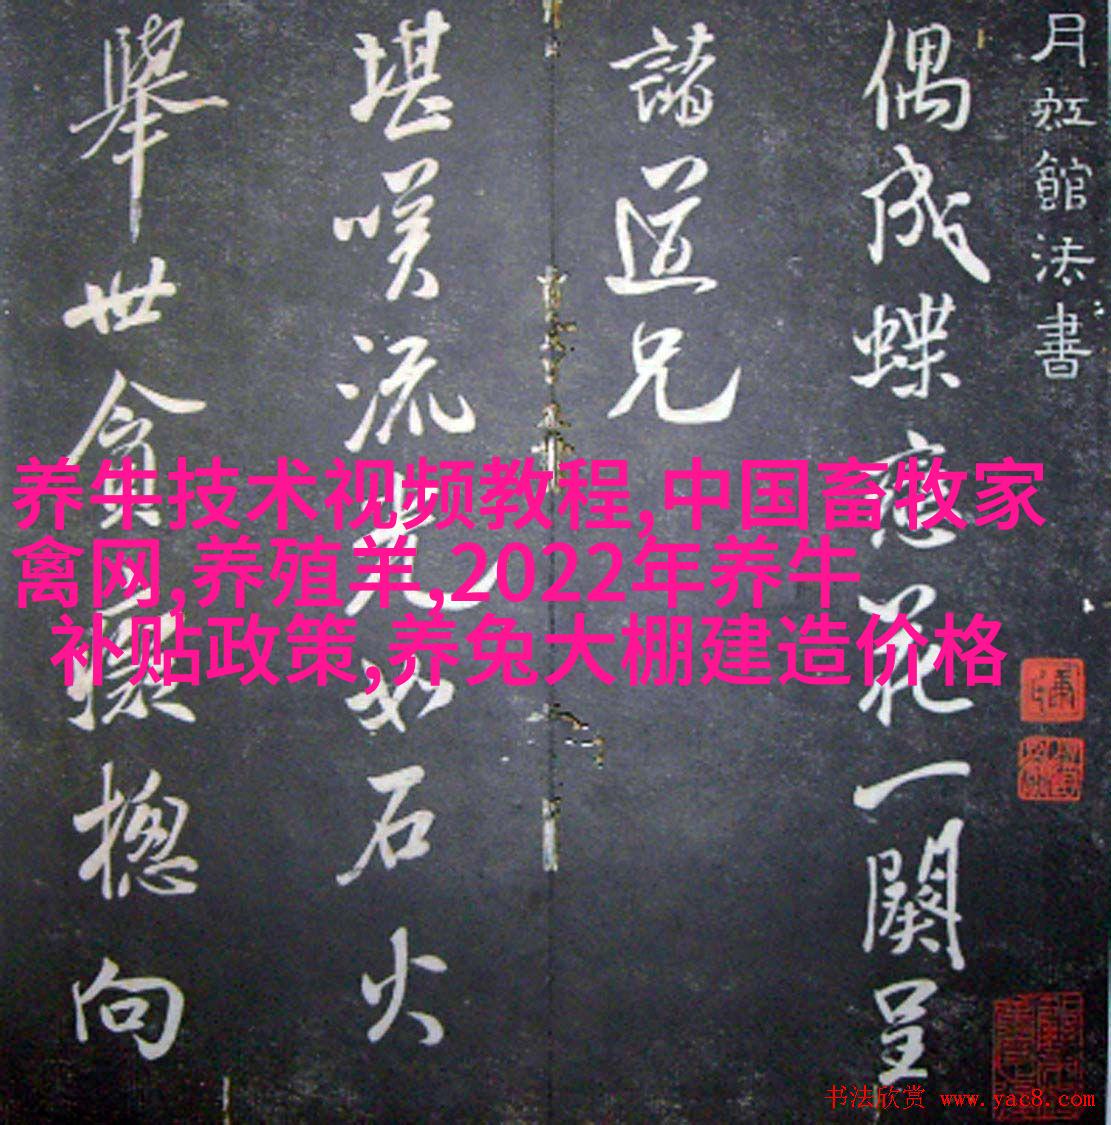 月虹館法書
偶成蝶戀花一闋呈
諸道兄
堪嘆流光如石火
舉世貪癡摠向
养牛技术视频教程,中国畜牧家
禽网,养殖羊,2022年养牛
补贴政策,养兔大棚建造价格
书法欣赏 www.yac8.com